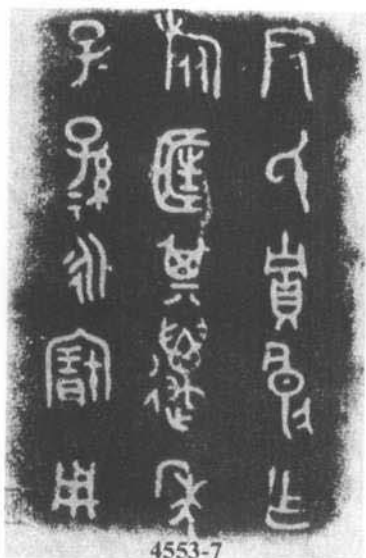 尹氏賈良乍
旅匡其萬年
子=孫=永寶用
4553-7